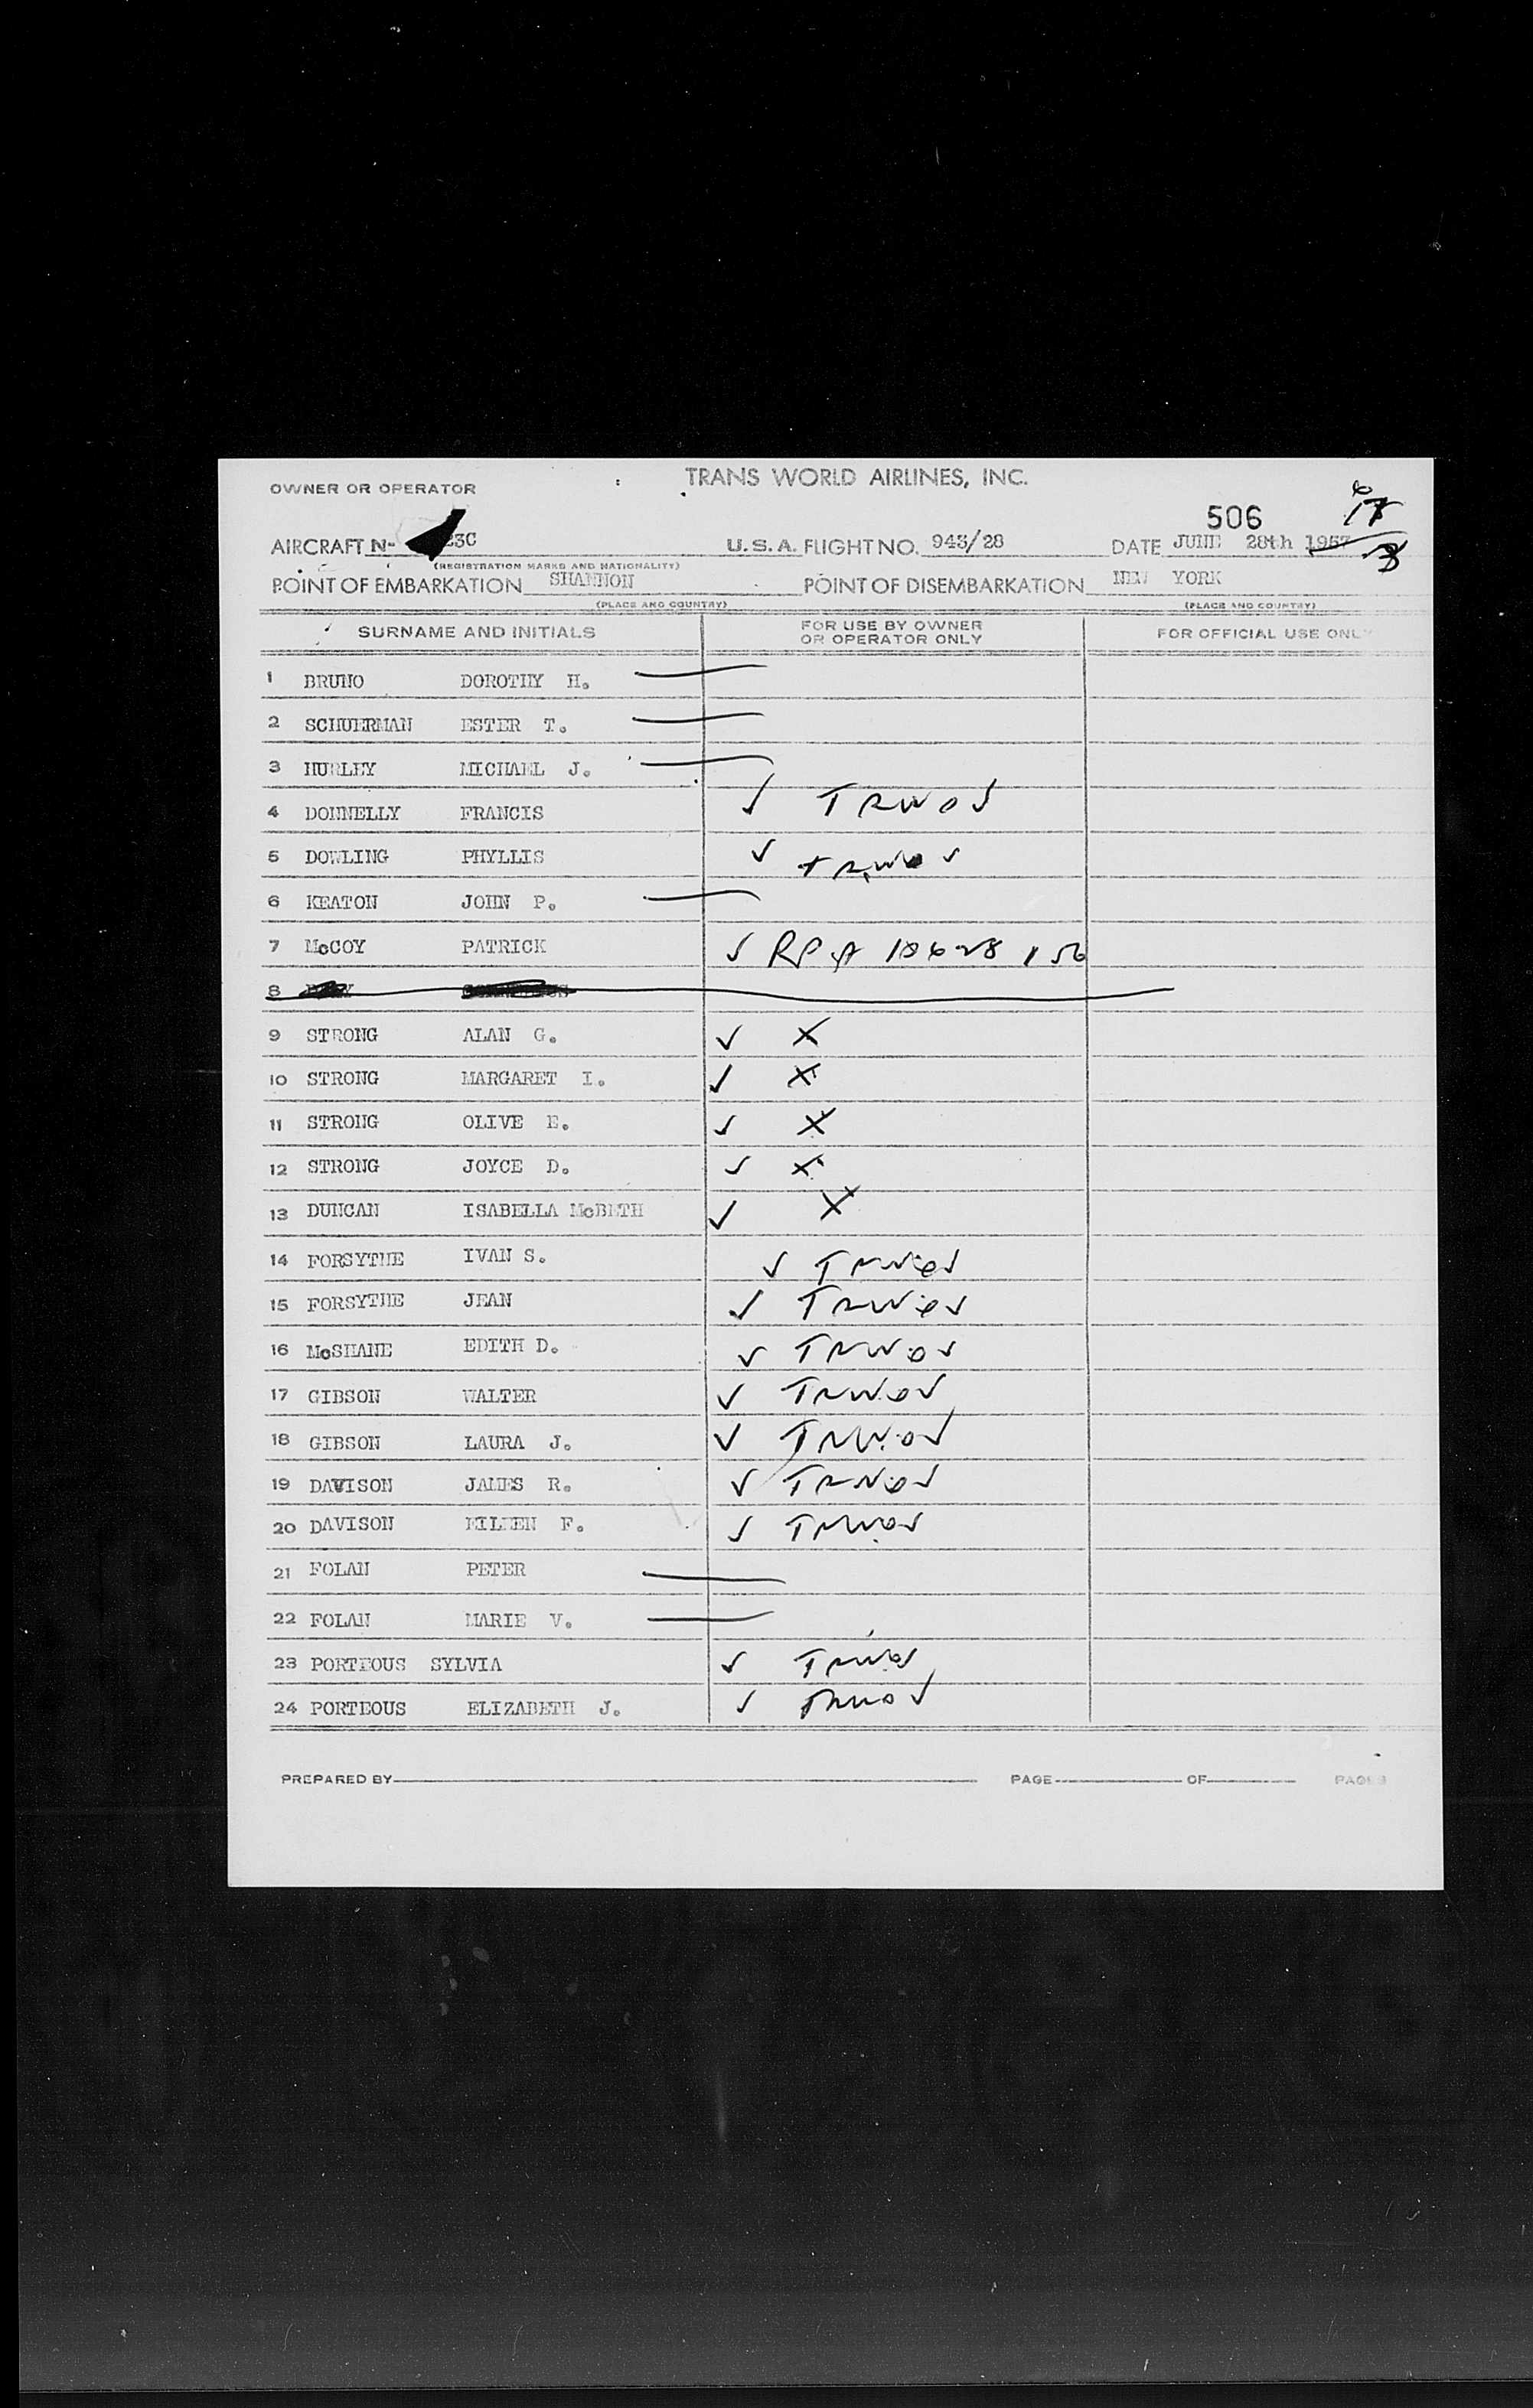 TRANS WORLD AIRLINES, INC.
OWNER OR OPERATOR
506 17
AIRCRAFT N- 23C U.S.A. FLIGHT NO. 943/28 DATE JUNE 28th 1957
(REGISTRATION MARKS AND NATIONALITY)
POINT OF EMBARKATION SHANNON POINT OF DISEMBARKATION NEW YORK
(PLACE AND COUNTRY) (PLACE AND COUNTRY)
SURNAME AND INITIALS FOR USE BY OWNER OR OPERATOR ONLY FOR OFFICIAL USE ONLY
1 BRUNO DOROTHY H.
2 SCHUERMAN ESTER T.
3 HURLEY MICHAEL J.
4 DONNELLY FRANCIS ✓ TRWOV
5 DOWLING PHYLLIS ✓ TRWOV
6 KEATON JOHN P.
7 McCOY PATRICK ✓ RP
8
9 STRONG ALAN G. ✓ X
10 STRONG MARGARET I. ✓ X
11 STRONG OLIVE E. ✓ X
12 STRONG JOYCE D. ✓ X
13 DUNCAN ISABELLA McBETH ✓ X
14 FORSYTHE IVAN S. ✓ TRWOV
15 FORSYTHE JEAN ✓ TRWOV
16 McSHANE EDITH D. ✓ TRWOV
17 GIBSON WALTER ✓ TRWOV
18 GIBSON LAURA J. ✓ TRWOV
19 DAVISON JAMES R. ✓ TRWOV
20 DAVISON EILEEN F. ✓ TRWOV
21 FOLAN PETER
22 FOLAN MARIE V.
23 PORTEOUS SYLVIA ✓ TRWOV
24 PORTEOUS ELIZABETH J. ✓ TRWOV
PREPARED BY PAGE OF PAGES